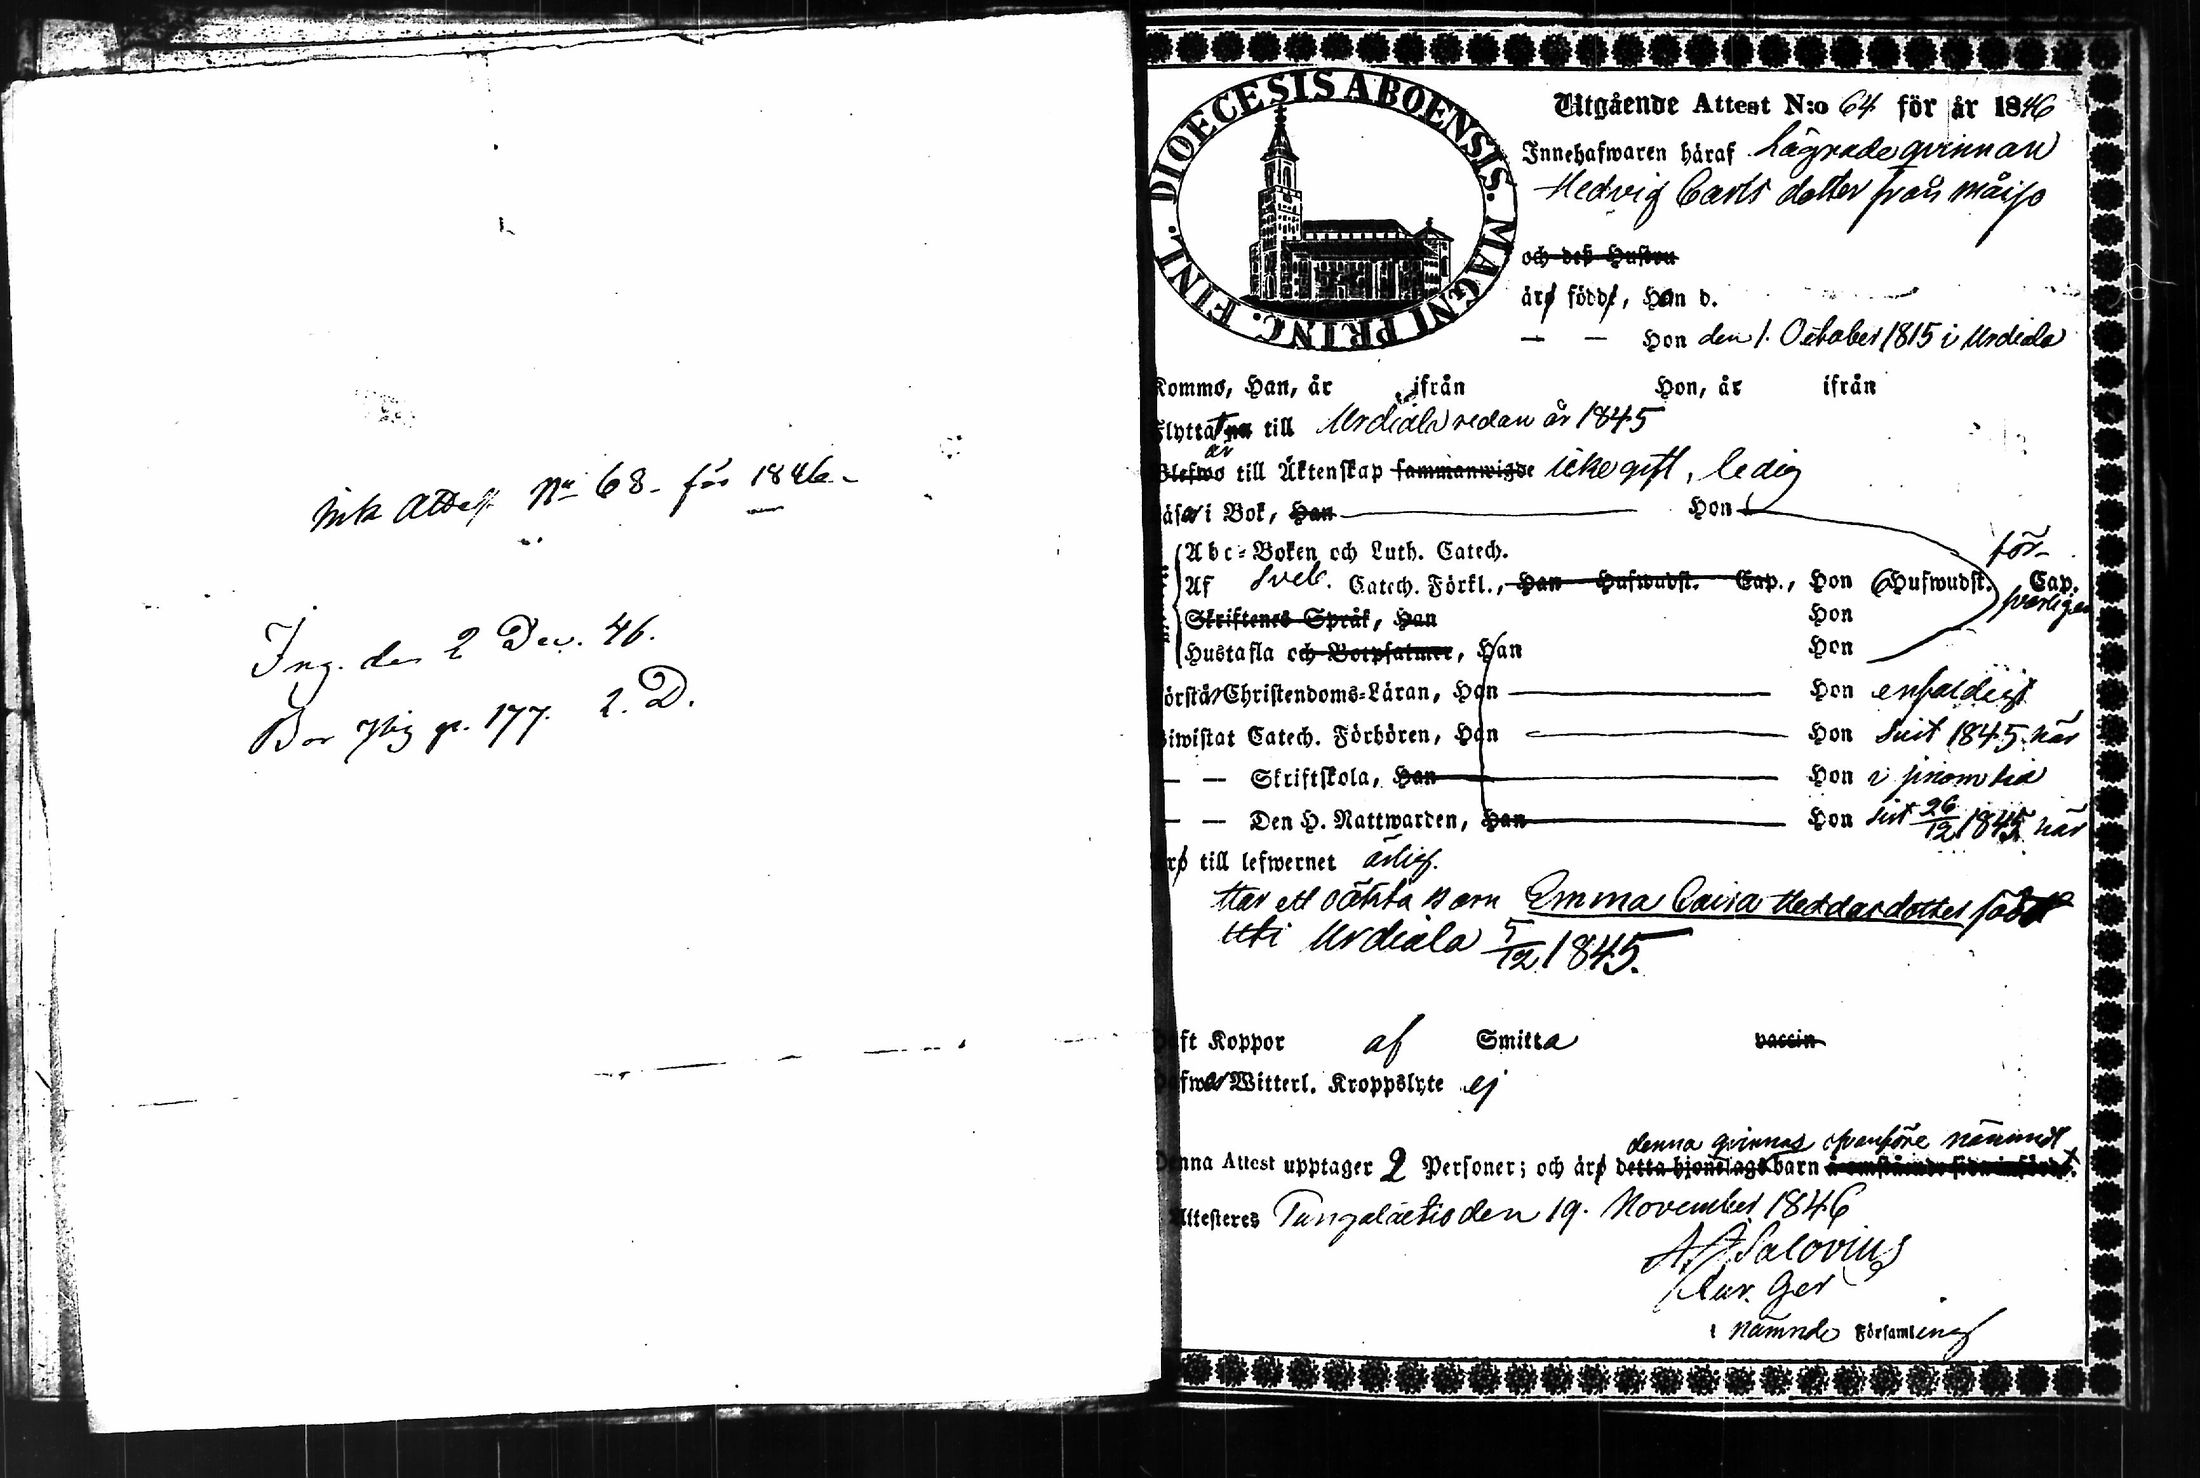 Ink Attest No 68 för 1846
Ing. den 2 Dec. 46.
Bor pag. 177. 2. D.
DIOECESIS ABOENSIS. MAGNI PRINC. FINL.
Utgående Attest N:o 64 för år 1846
Innehafwaren häraf Lägrade qvinnan
Hedvig Carls dotter från
och deß Hustru
äro födde, Han d.
— — Hon den 1. October 1815 i Urdiala
Kommo, Han, år ifrån Hon, år ifrån
Flyttat till Urdiala redan år 1845
är
Blefwo till Äktenskap sammanwigde icke gift, ledig
Läsa i Bok, Han Hon
Abc-Boken och Luth. Catech. för-
Af Sveb. Catech. Förkl., Han Hufwudst. Cap., Hon 6 Hufwudst. Cap.
svarligen
Skriftenes Språk, Han Hon
Hustafla och Botpsalmer, Han Hon
Förstår Christendoms-Läran, Han Hon enfaldigt
Biwistat Catech. Förhören, Han Hon sist 1845 här
— — Skriftskola, Han Hon i sinom tid
— — Den H. Nattwarden, Han Hon sist 26/12 1845 här
Äro till lefwernet ärlig.
Har ett oäkta barn Emma Caisa Heddasdotter född
uti Urdiala 5/12 1845.
Haft Koppor af Smitta vaccin
Hafwa Witterl. Kroppslyte ej
denna qvinnas ofvanföre nämnd
Denna Attest upptager 2 Personer; och äro detta hjonelags barn å omstående sida införde.
Attesteres Tungalaetio den 19. November 1846
Salovius
i nämnde Församling